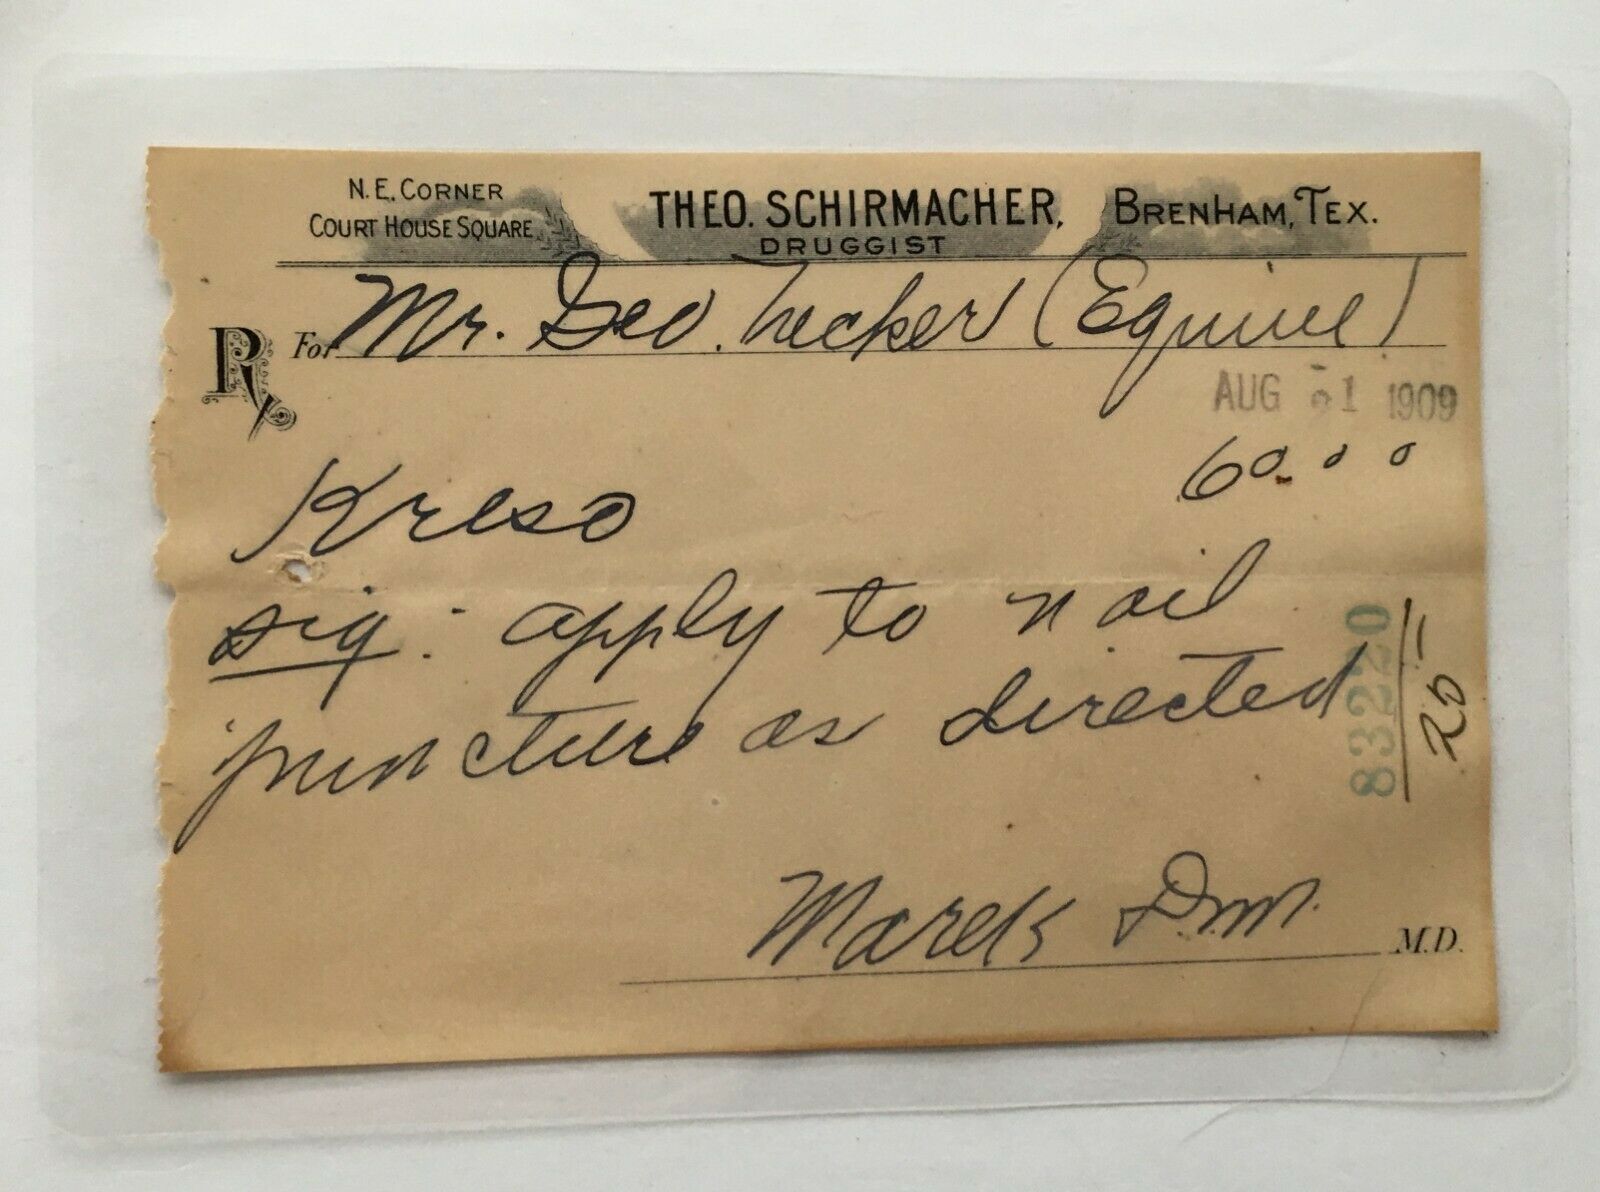 N.E. CORNER
COURT HOUSE SQUARE
THEO. SCHIRMACHER,
DRUGGIST
BRENHAM, TEX.
Rx For Mr. Geo. Necker (Equine)
AUG 31 1909
Kreso 60.00
sig: apply to nail
puncture as directed
83220
25
Mareks D.V.M. M.D.